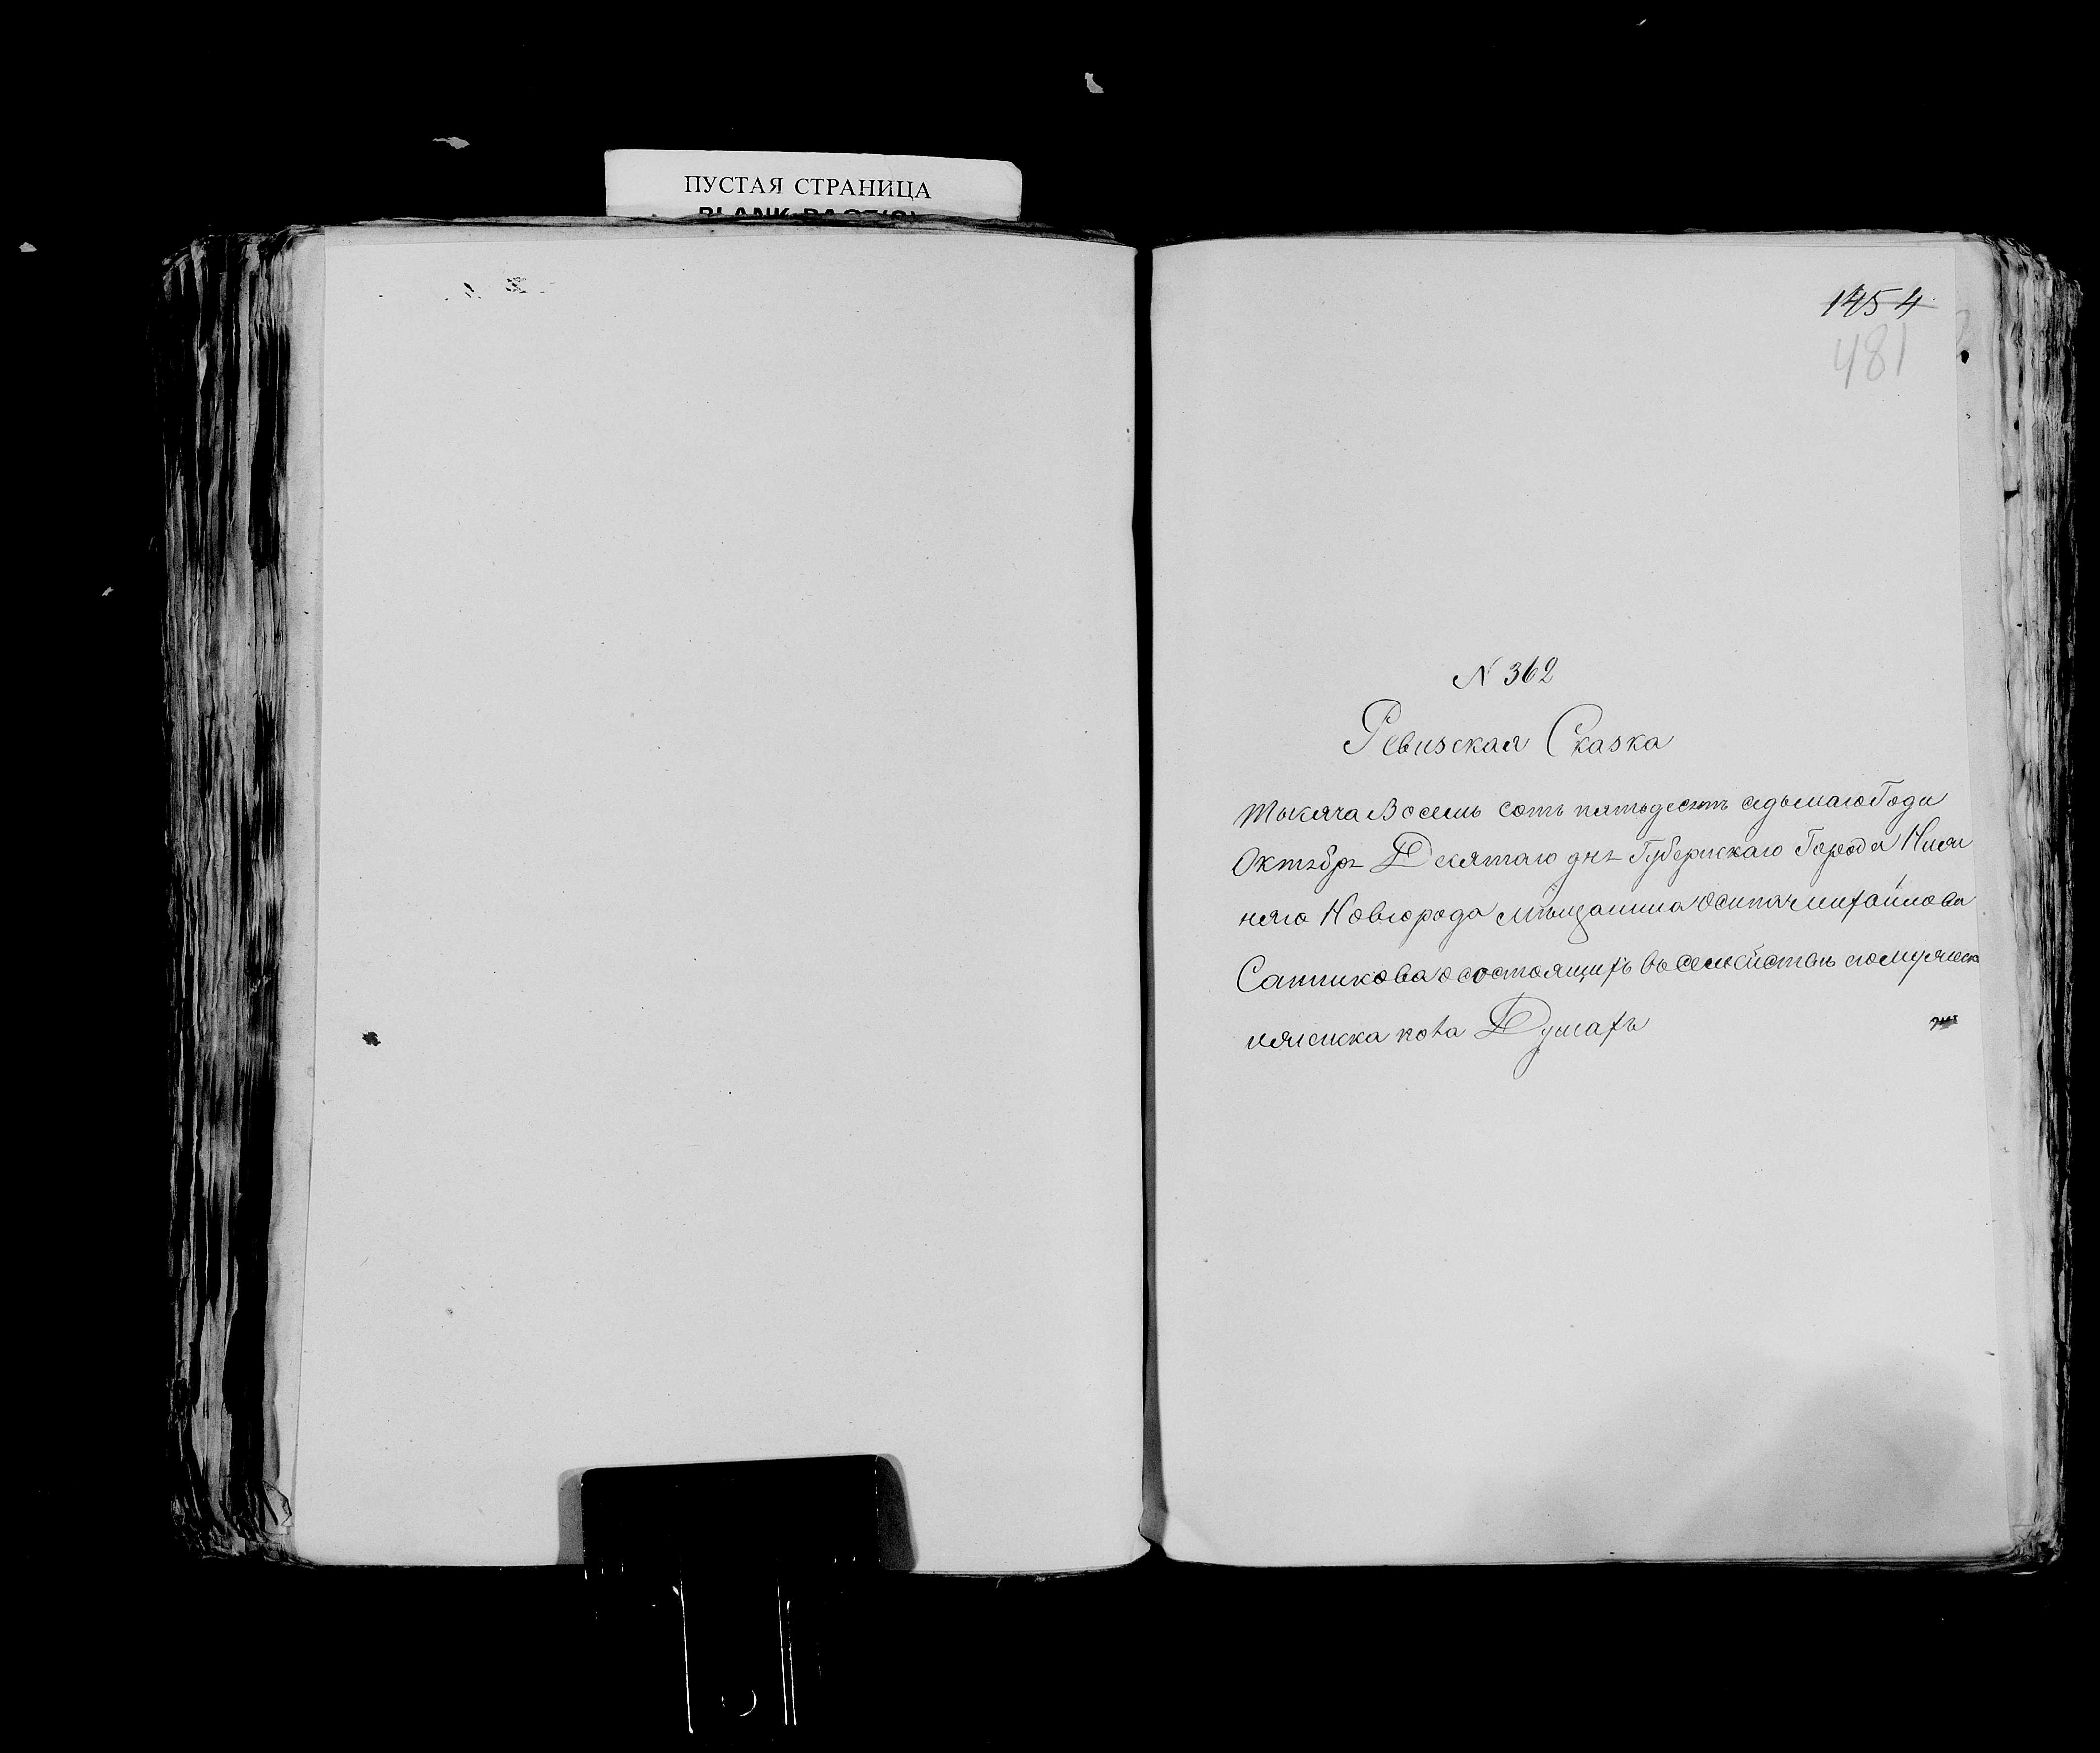 ПУСТАЯ СТРАНИЦА
BLANK PAGE(S)
1454
481
N 362
Ревизская Сказка
тысяча Восемь сотъ пятьдесятъ седьмаго Года
Октября Десятаго дня Губернскаго Города Ниж
няго Новгорода мѣщанина Осипа михайлова
Сапникова о состоящихъ въ семействѣ
пола Душахъ